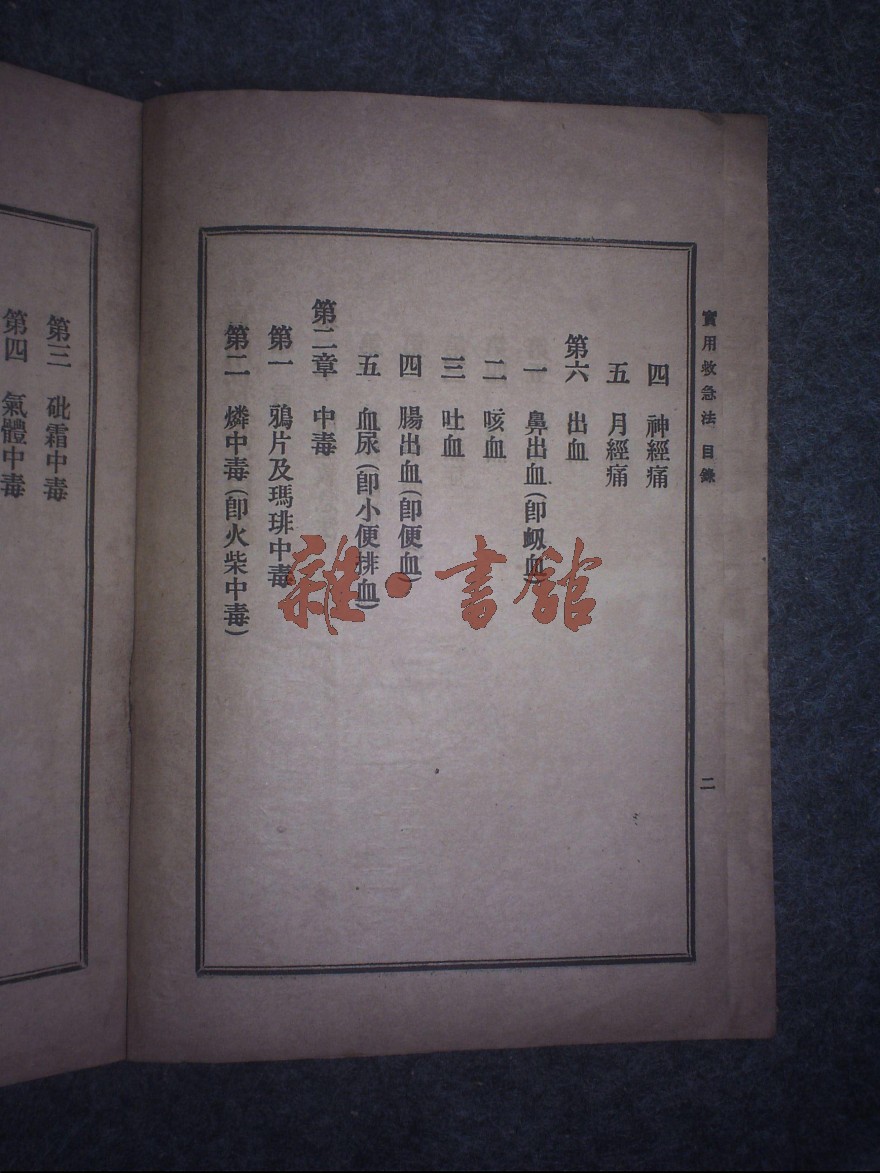 實用救急法 目錄 二
四 神經痛
五 月經痛
第六 出血
一 鼻出血(卽衂血)
二 咳血
三 吐血
四 腸出血(卽便血)
五 血尿(卽小便排血)
第二章 中毒
第一 鴉片及瑪琲中毒
第二 燐中毒(卽火柴中毒)
第三 砒霜中毒
第四 氣體中毒
雜·書館